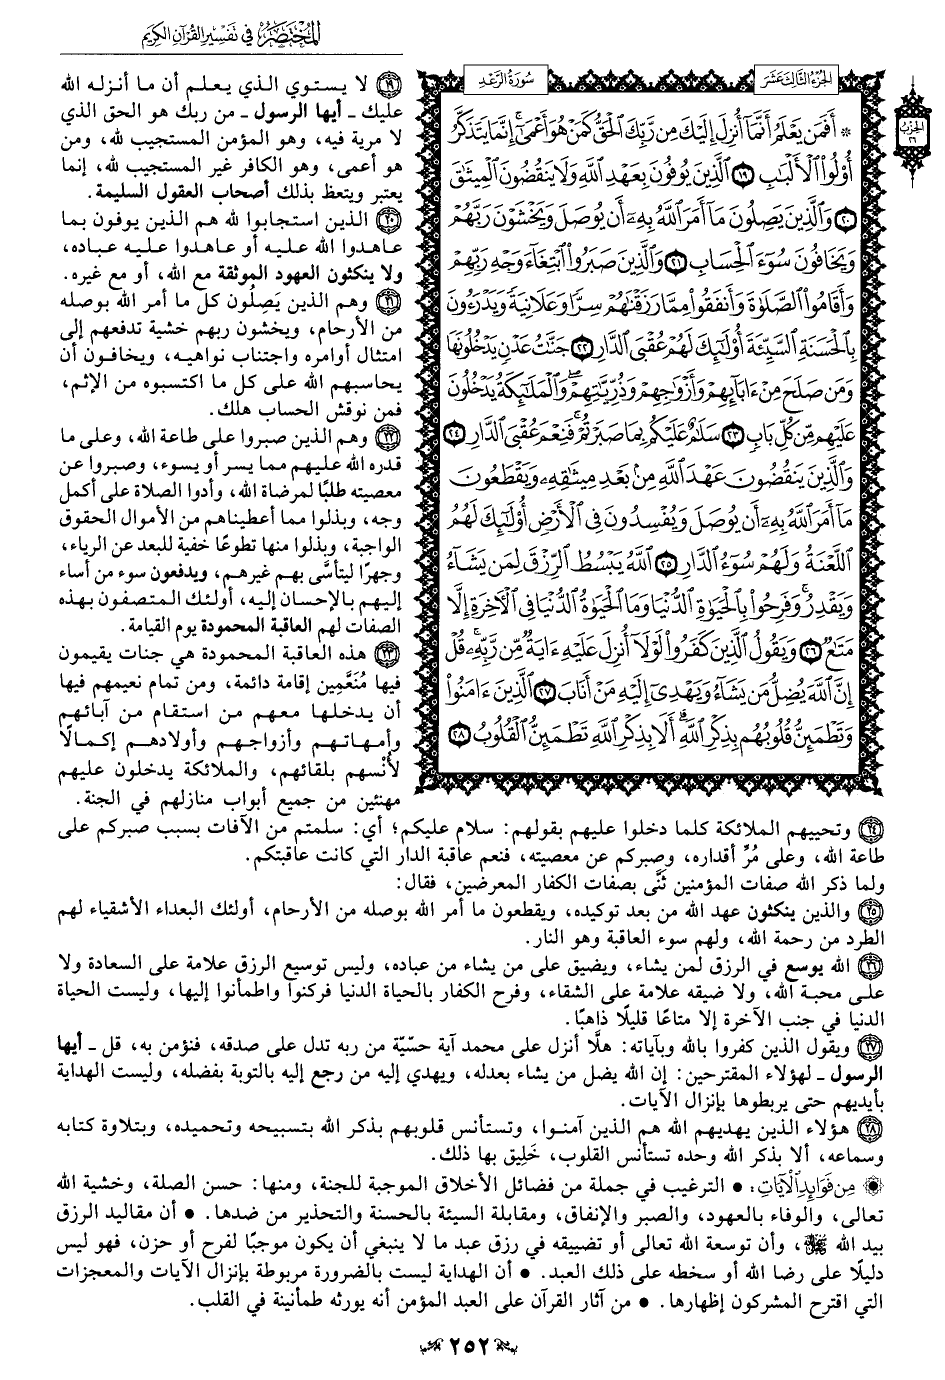 المختصر في تفسير القرآن الكريم
الجزء الثالث عشر
سورة الرعد
الحزب ٢٦
۞ أَفَمَن يَعْلَمُ أَنَّمَا أُنزِلَ إِلَيْكَ مِن رَّبِّكَ الْحَقُّ كَمَنْ هُوَ أَعْمَىٰ ۚ إِنَّمَا يَتَذَكَّرُ
أُوْلُوا۟ الْأَلْبَٰبِ ١٩ الَّذِينَ يُوفُونَ بِعَهْدِ اللَّهِ وَلَا يَنقُضُونَ الْمِيثَٰقَ
٢٠ وَالَّذِينَ يَصِلُونَ مَا أَمَرَ اللَّهُ بِهِۦ أَن يُوصَلَ وَيَخْشَوْنَ رَبَّهُمْ
وَيَخَافُونَ سُوٓءَ الْحِسَابِ ٢١ وَالَّذِينَ صَبَرُوا۟ ابْتِغَآءَ وَجْهِ رَبِّهِمْ
وَأَقَامُوا۟ الصَّلَوٰةَ وَأَنفَقُوا۟ مِمَّا رَزَقْنَٰهُمْ سِرًّا وَعَلَانِيَةً وَيَدْرَءُونَ
بِالْحَسَنَةِ السَّيِّئَةَ أُوْلَٰٓئِكَ لَهُمْ عُقْبَى الدَّارِ ٢٢ جَنَّٰتُ عَدْنٍ يَدْخُلُونَهَا
وَمَن صَلَحَ مِنْ ءَابَآئِهِمْ وَأَزْوَٰجِهِمْ وَذُرِّيَّٰتِهِمْ ۖ وَالْمَلَٰٓئِكَةُ يَدْخُلُونَ
عَلَيْهِم مِّن كُلِّ بَابٍ ٢٣ سَلَٰمٌ عَلَيْكُم بِمَا صَبَرْتُمْ ۚ فَنِعْمَ عُقْبَى الدَّارِ ٢٤
وَالَّذِينَ يَنقُضُونَ عَهْدَ اللَّهِ مِنۢ بَعْدِ مِيثَٰقِهِۦ وَيَقْطَعُونَ
مَا أَمَرَ اللَّهُ بِهِۦ أَن يُوصَلَ وَيُفْسِدُونَ فِي الْأَرْضِ أُوْلَٰٓئِكَ لَهُمُ
اللَّعْنَةُ وَلَهُمْ سُوٓءُ الدَّارِ ٢٥ اللَّهُ يَبْسُطُ الرِّزْقَ لِمَن يَشَآءُ
وَيَقْدِرُ ۚ وَفَرِحُوا۟ بِالْحَيَوٰةِ الدُّنْيَا وَمَا الْحَيَوٰةُ الدُّنْيَا فِي الْآخِرَةِ إِلَّا
مَتَٰعٌ ٢٦ وَيَقُولُ الَّذِينَ كَفَرُوا۟ لَوْلَا أُنزِلَ عَلَيْهِ ءَايَةٌ مِّن رَّبِّهِۦ ۗ قُلْ
إِنَّ اللَّهَ يُضِلُّ مَن يَشَآءُ وَيَهْدِي إِلَيْهِ مَنْ أَنَابَ ٢٧ الَّذِينَ ءَامَنُوا۟
وَتَطْمَئِنُّ قُلُوبُهُم بِذِكْرِ اللَّهِ ۗ أَلَا بِذِكْرِ اللَّهِ تَطْمَئِنُّ الْقُلُوبُ ٢٨
١٩ لا يستوي الذي يعلم أن ما أنزله الله
عليك ـ أيها الرسول ـ من ربك هو الحق الذي
لا مرية فيه، وهو المؤمن المستجيب لله، ومن
هو أعمى، وهو الكافر غير المستجيب لله، إنما
يعتبر ويتعظ بذلك أصحاب العقول السليمة.
٢٠ الذين استجابوا لله هم الذين يوفون بما
عاهدوا الله عليه أو عاهدوا عليه عباده،
ولا ينكثون العهود الموثقة مع الله، أو مع غيره.
٢١ وهم الذين يَصِلُون كل ما أمر الله بوصله
من الأرحام، ويخشون ربهم خشية تدفعهم إلى
امتثال أوامره واجتناب نواهيه، ويخافون أن
يحاسبهم الله على كل ما اكتسبوه من الإثم،
فمن نوقش الحساب هلك.
٢٢ وهم الذين صبروا على طاعة الله، وعلى ما
قدره الله عليهم مما يسر أو يسوء، وصبروا عن
معصيته طلبًا لمرضاة الله، وأدوا الصلاة على أكمل
وجه، وبذلوا مما أعطيناهم من الأموال الحقوق
الواجبة، وبذلوا منها تطوعًا خفية للبعد عن الرياء،
وجهرًا ليتأسَّى بهم غيرهم، ويدفعون سوء من أساء
إليهم بالإحسان إليه، أولئك المتصفون بهذه
الصفات لهم العاقبة المحمودة يوم القيامة.
٢٣ هذه العاقبة المحمودة هي جنات يقيمون
فيها مُنَعَّمِين إقامة دائمة، ومن تمام نعيمهم فيها
أن يدخلها معهم من استقام من آبائهم
وأمهاتهم وأزواجهم وأولادهم إكمالًا
لأُنْسهم بلقائهم، والملائكة يدخلون عليهم
مهنئين من جميع أبواب منازلهم في الجنة.
٢٤ وتحييهم الملائكة كلما دخلوا عليهم بقولهم: سلام عليكم؛ أي: سلمتم من الآفات بسبب صبركم على
طاعة الله، وعلى مُرِّ أقداره، وصبركم عن معصيته، فنعم عاقبة الدار التي كانت عاقبتكم.
ولما ذكر الله صفات المؤمنين ثَنَّى بصفات الكفار المعرضين، فقال:
٢٥ والذين ينكثون عهد الله من بعد توكيده، ويقطعون ما أمر الله بوصله من الأرحام، أولئك البعداء الأشقياء لهم
الطرد من رحمة الله، ولهم سوء العاقبة وهو النار.
٢٦ الله يوسع في الرزق لمن يشاء، ويضيق على من يشاء من عباده، وليس توسيع الرزق علامة على السعادة ولا
على محبة الله، ولا ضيقه علامة على الشقاء، وفرح الكفار بالحياة الدنيا فركنوا واطمأنوا إليها، وليست الحياة
الدنيا في جنب الآخرة إلا متاعًا قليلًا ذاهبًا.
٢٧ ويقول الذين كفروا بالله وبآياته: هلَّا أنزل على محمد آية حسّيّة من ربه تدل على صدقه، فنؤمن به، قل ـ أيها
الرسول ـ لهؤلاء المقترحين: إن الله يضل من يشاء بعدله، ويهدي إليه من رجع إليه بالتوبة بفضله، وليست الهداية
بأيديهم حتى يربطوها بإنزال الآيات.
٢٨ هؤلاء الذين يهديهم الله هم الذين آمنوا، وتستأنس قلوبهم بذكر الله بتسبيحه وتحميده، وبتلاوة كتابه
وسماعه، ألا بذكر الله وحده تستأنس القلوب، خَلِيق بها ذلك.
من فوائد الآيات: • الترغيب في جملة من فضائل الأخلاق الموجبة للجنة، ومنها: حسن الصلة، وخشية الله
تعالى، والوفاء بالعهود، والصبر والإنفاق، ومقابلة السيئة بالحسنة والتحذير من ضدها. • أن مقاليد الرزق
بيد الله ، وأن توسعة الله تعالى أو تضييقه في رزق عبد ما لا ينبغي أن يكون موجبًا لفرح أو حزن، فهو ليس
دليلًا على رضا الله أو سخطه على ذلك العبد. • أن الهداية ليست بالضرورة مربوطة بإنزال الآيات والمعجزات
التي اقترح المشركون إظهارها. • من آثار القرآن على العبد المؤمن أنه يورثه طمأنينة في القلب.
٢٥٢